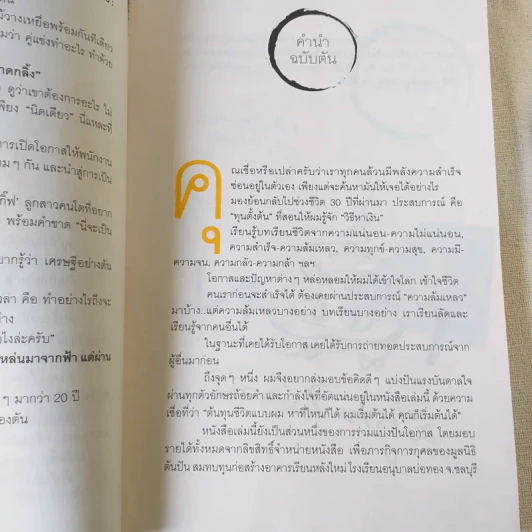 :
วางเหยื่อพร้อมกันทีเดียว
มว่า คู่แข่งทำอะไร ทำด้วย
าดกลิ้ง”
ดูว่าเขาต้องการอะไร ไม่
พียง “นิดเดียว” นี่แหละที่
การเปิดโอกาสให้พนักงาน
อมๆ กัน และนำสู่การเป็น
กิ๊ฟ’ ลูกสาวคนโตที่อยาก
พร้อมคำขาด “นี่จะเป็น
ยากรู้ว่า เศรษฐีอย่างตัน
ลา คือ ทำอย่างไรถึงจะ
ง่าง
งไงล่ะครับ”
หล่นมาจากฟ้า แต่ผ่าน
ๆ มากว่า 20 ปี
องตัน
คำนำ
ฉบับตัน
คุณเชื่อหรือเปล่าครับว่าเราทุกคนล้วนมีพลังความสำเร็จ
ซ่อนอยู่ในตัวเอง เพียงแต่จะค้นหามันให้เจอได้อย่างไร
มองย้อนกลับไปช่วงชีวิต 30 ปีที่ผ่านมา ประสบการณ์ คือ
“ทุนตั้งต้น” ที่สอนให้ผมรู้จัก “วิธีหาเงิน”
เรียนรู้บทเรียนชีวิตจากความแน่นอน-ความไม่แน่นอน,
ความสำเร็จ-ความล้มเหลว, ความทุกข์-ความสุข, ความมี-
ความจน, ความกลัว-ความกล้า ฯลฯ
โอกาสและปัญหาต่างๆ หล่อหลอมให้ผมได้เข้าใจโลก เข้าใจชีวิต
คนเราก่อนจะสำเร็จได้ ต้องเคยผ่านประสบการณ์ “ความล้มเหลว”
มาบ้าง..แต่ความล้มเหลวบางอย่าง บทเรียนบางอย่าง เราเรียนลัดและ
เรียนรู้จากคนอื่นได้
ในฐานะที่เคยได้รับโอกาส เคยได้รับการถ่ายทอดประสบการณ์จาก
ผู้อื่นมาก่อน
ถึงจุดๆ หนึ่ง ผมจึงอยากส่งมอบข้อคิดดีๆ แบ่งปันแรงบันดาลใจ
ผ่านทุกตัวอักษรถ้อยคำ และกำลังใจที่อัดแน่นอยู่ในหนังสือเล่มนี้ ด้วยความ
เชื่อที่ว่า “ต้นทุนชีวิตแบบผม หาที่ไหนก็ได้ ผมเริ่มต้นได้ คุณก็เริ่มต้นได้”
หนังสือเล่มนี้ยังเป็นส่วนหนึ่งของการร่วมแบ่งปันโอกาส โดยมอบ
รายได้ทั้งหมดจากลิขสิทธิ์จำหน่ายหนังสือ เพื่อภารกิจการกุศลของมูลนิธิ
ตันปัน สมทบทุนก่อสร้างอาคารเรียนหลังใหม่ โรงเรียนอนุบาลบ่อทอง จ.ชลบุรี